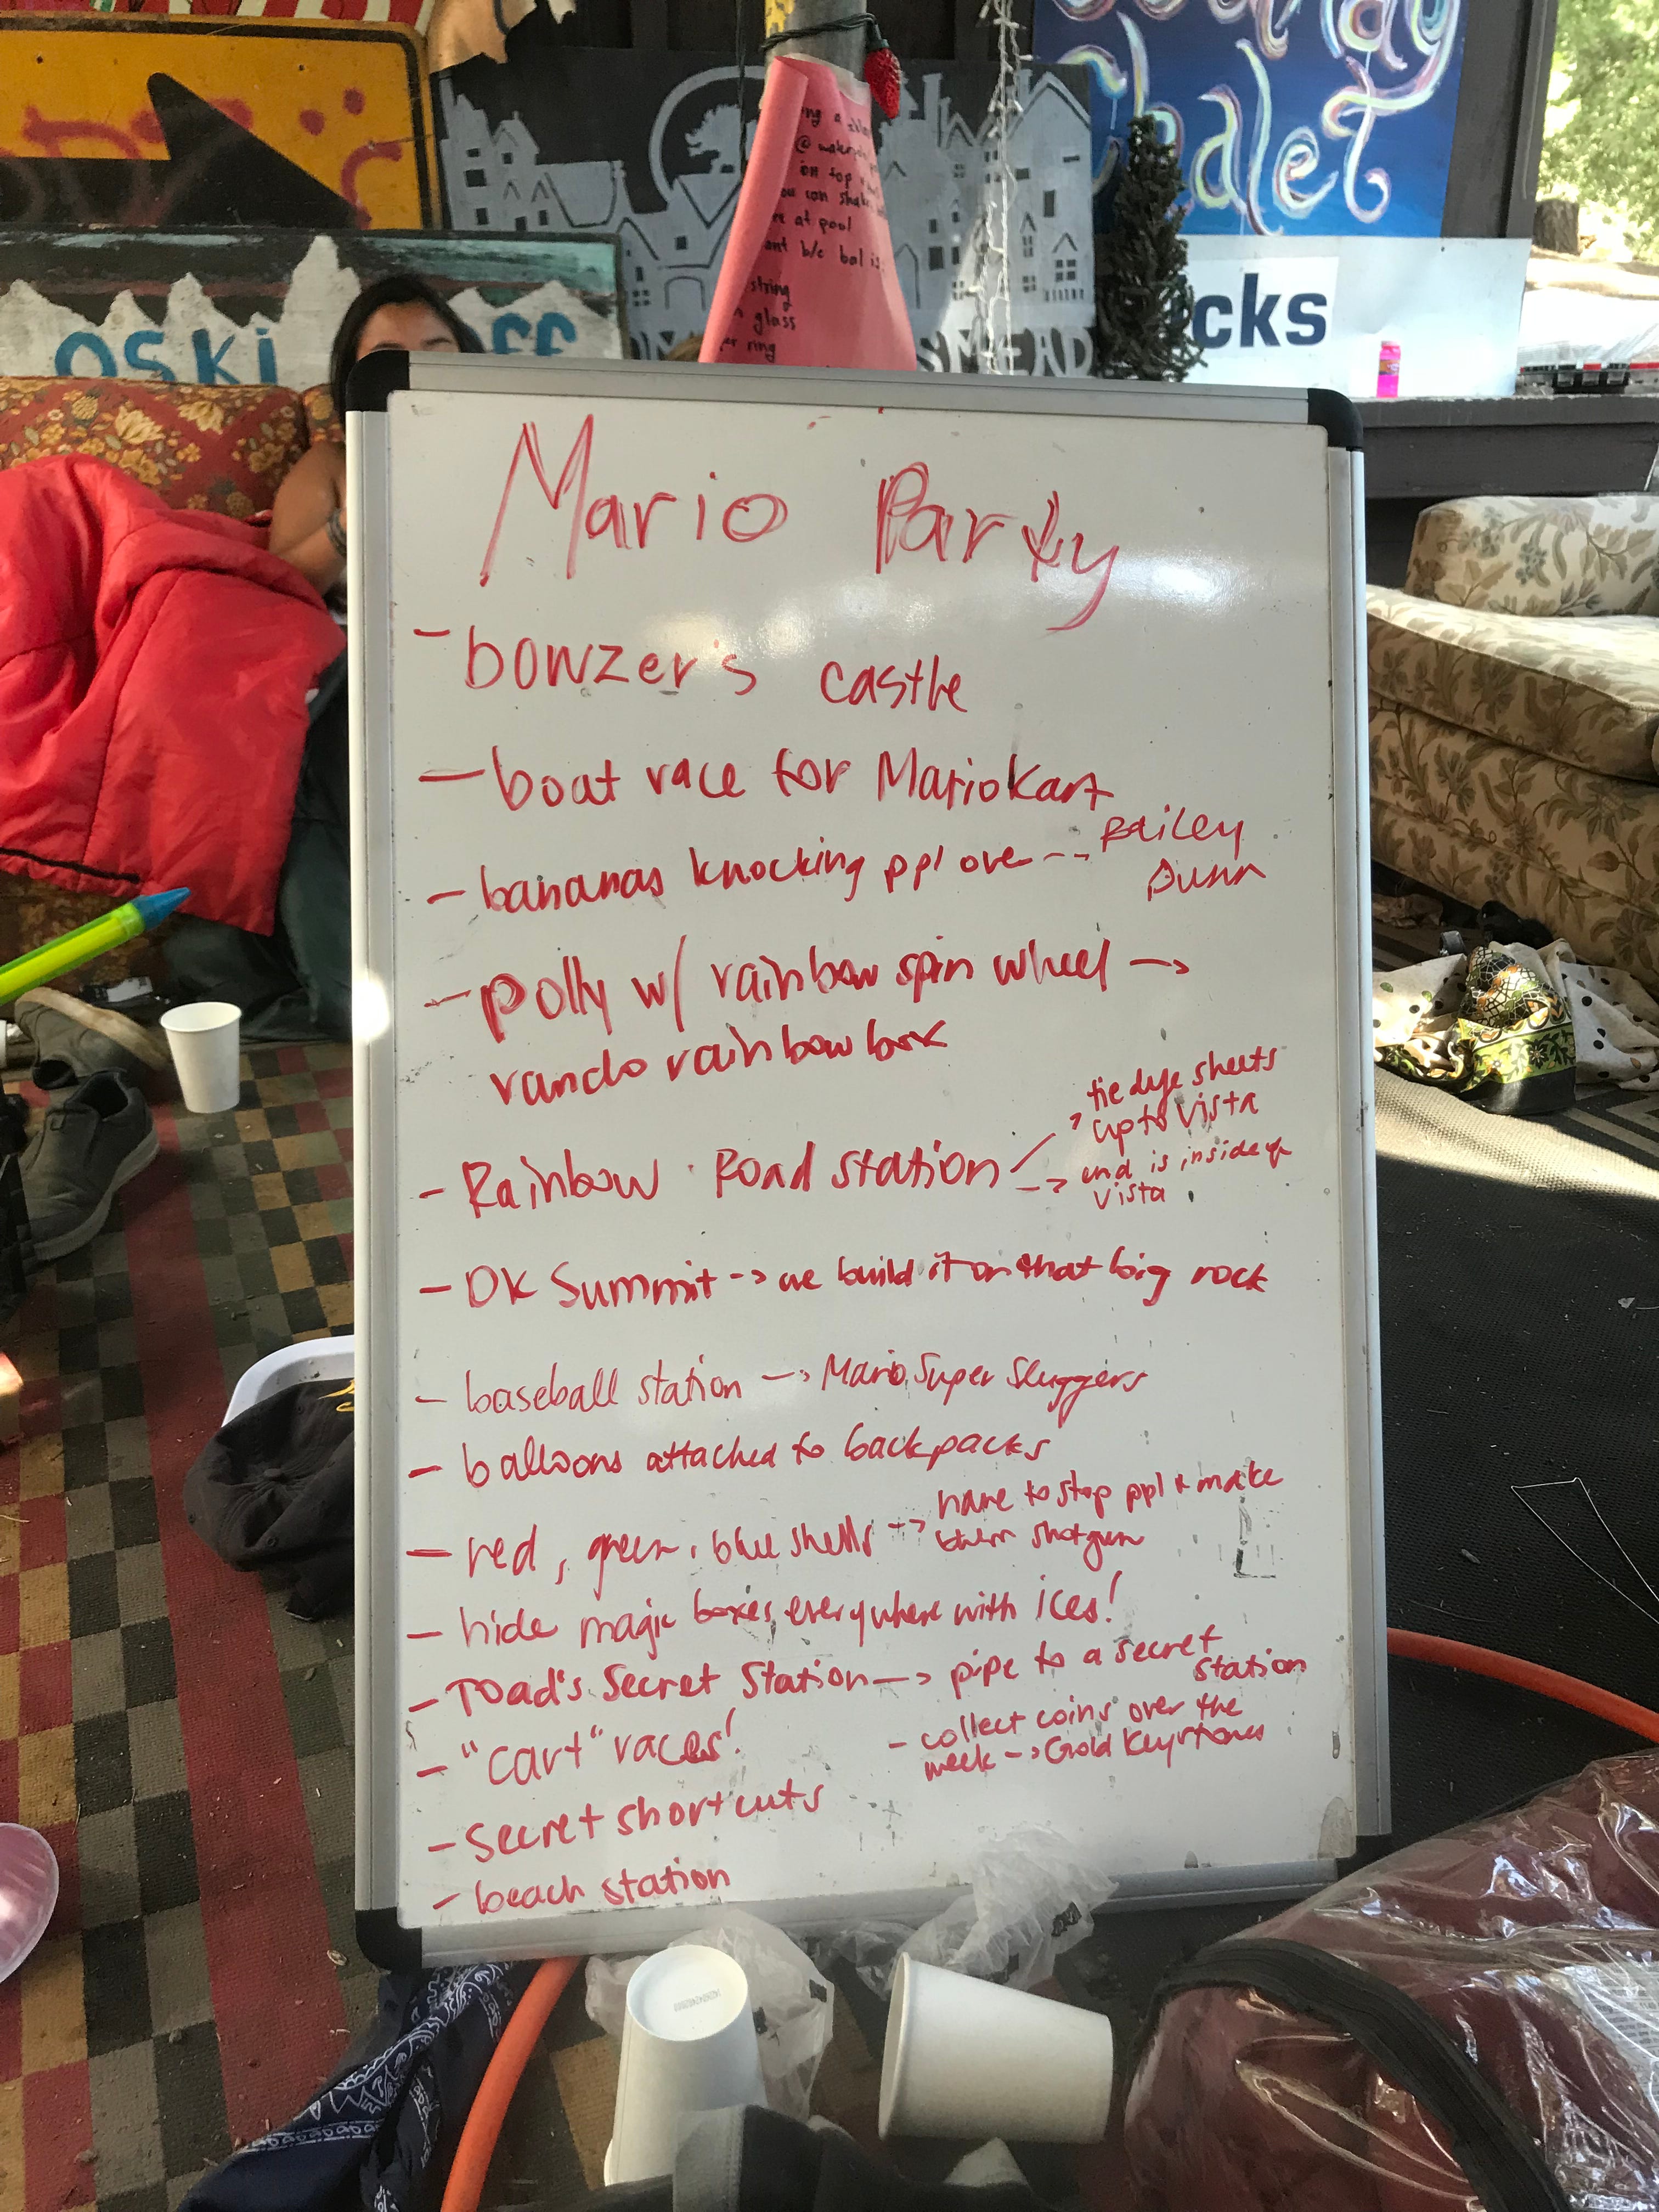 Chalet
OSKI
cks
ng a
@
on top
ou can
at pool
ant b/c
string
glass
ring
SMEAD
Mario Party
- bowzer's castle
- boat race for MarioKart
- bananas knocking ppl over --- Bailey
Dunn
- Polly w/ rainbow spin wheel ->
rando rainbow box
- Rainbow Road station -> tie dye sheets
up to Vista
-> end is inside of
Vista
- DK Summit -> we build it on that big rock
- baseball station -> Mario Super Sluggers
- balloons attached to backpacks
- red, green, blue shells -> have to stop ppl & make
them shotgun
- hide magic boxes everywhere with ices!
- Toad's Secret Station -> pipe to a secret
station
- "cart" races!
- collect coins over the
week -> Gold Keystones
- secret shortcuts
- beach station